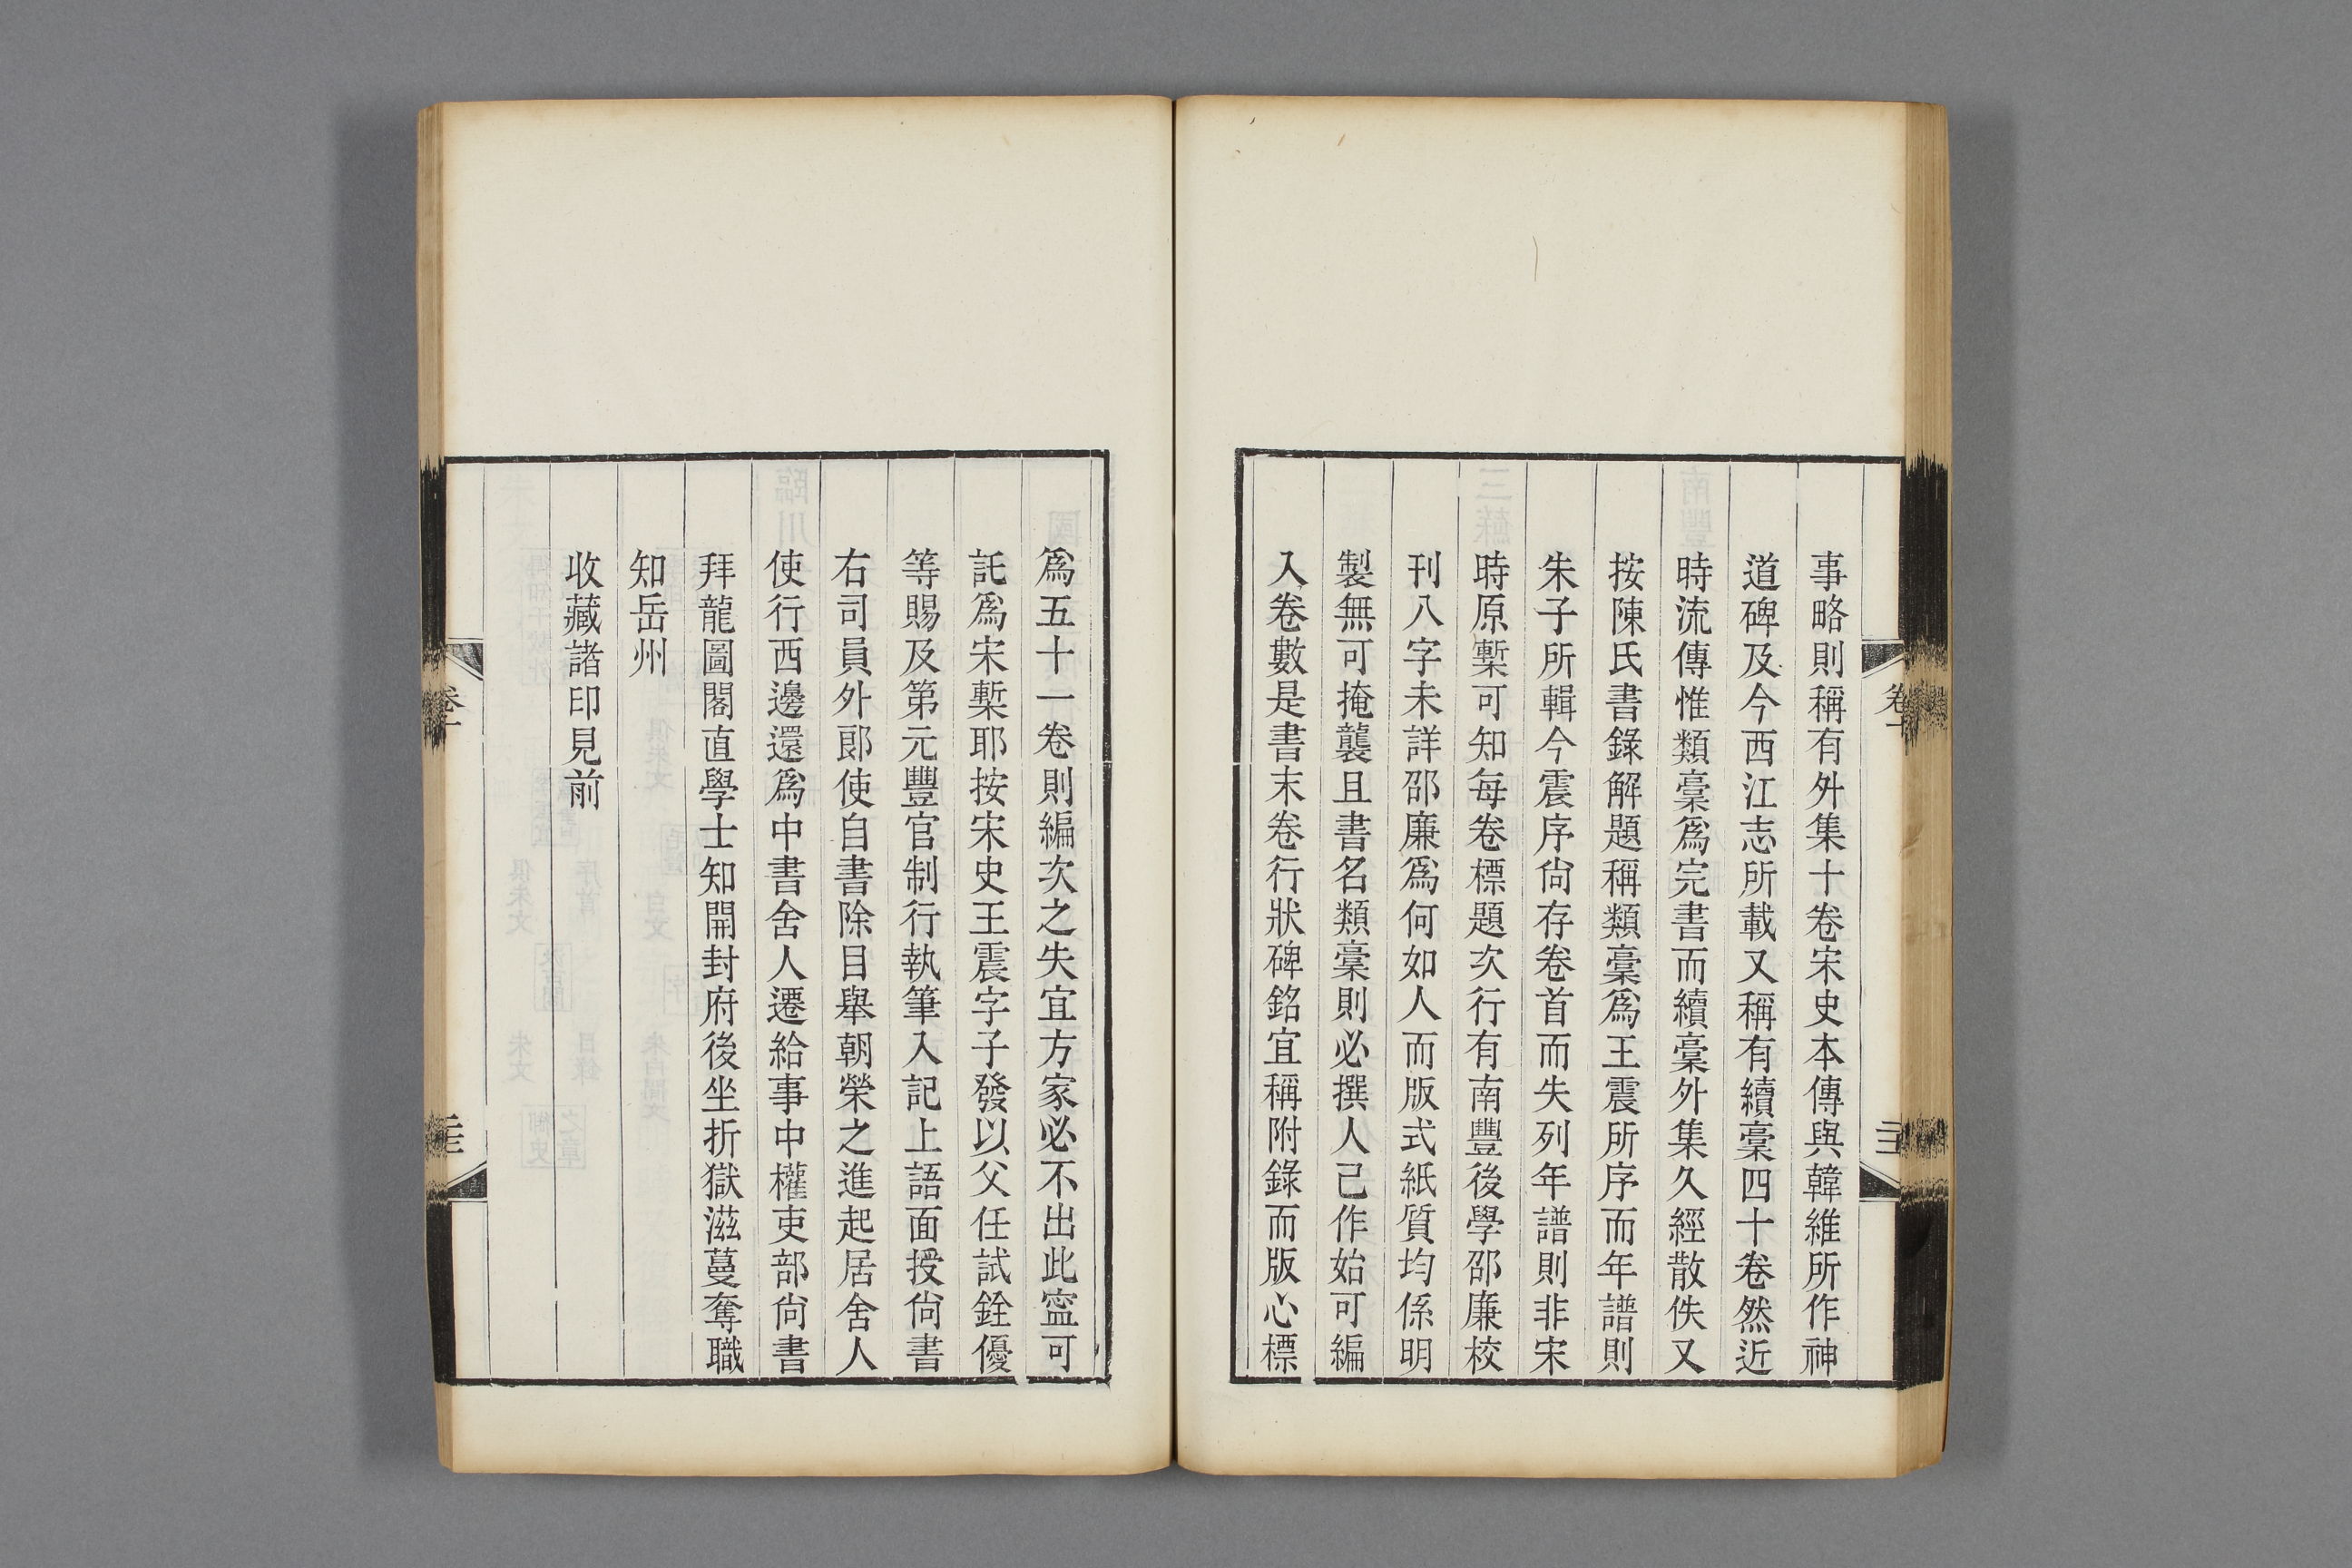 事略則稱有外集十卷宋史本傳與韓維所作神
道碑及今西江志所載又稱有續稾四十卷然近
時流傳惟類稾爲完書而續稾外集久經散佚又
按陳氏書錄解題稱類稾爲王震所序而年譜則
朱子所輯今震序尙存卷首而失列年譜則非宋
時原槧可知每卷標題次行有南豐後學邵廉校
刊八字未詳邵廉爲何如人而版式紙質均係明
製無可掩襲且書名類稾則必撰人己作始可編
入卷數是書末卷行狀碑銘宜稱附錄而版心標
卷十
爲五十一卷則編次之失宜方家必不出此寍可
託爲宋槧耶按宋史王震字子發以父任試銓優
等賜及第元豐官制行執筆入記上語面授尙書
右司員外郞使自書除目舉朝榮之進起居舍人
使行西邊還爲中書舍人遷給事中權吏部尙書
拜龍圖閣直學士知開封府後坐折獄滋蔓奪職
知岳州
收藏諸印見前
卷十